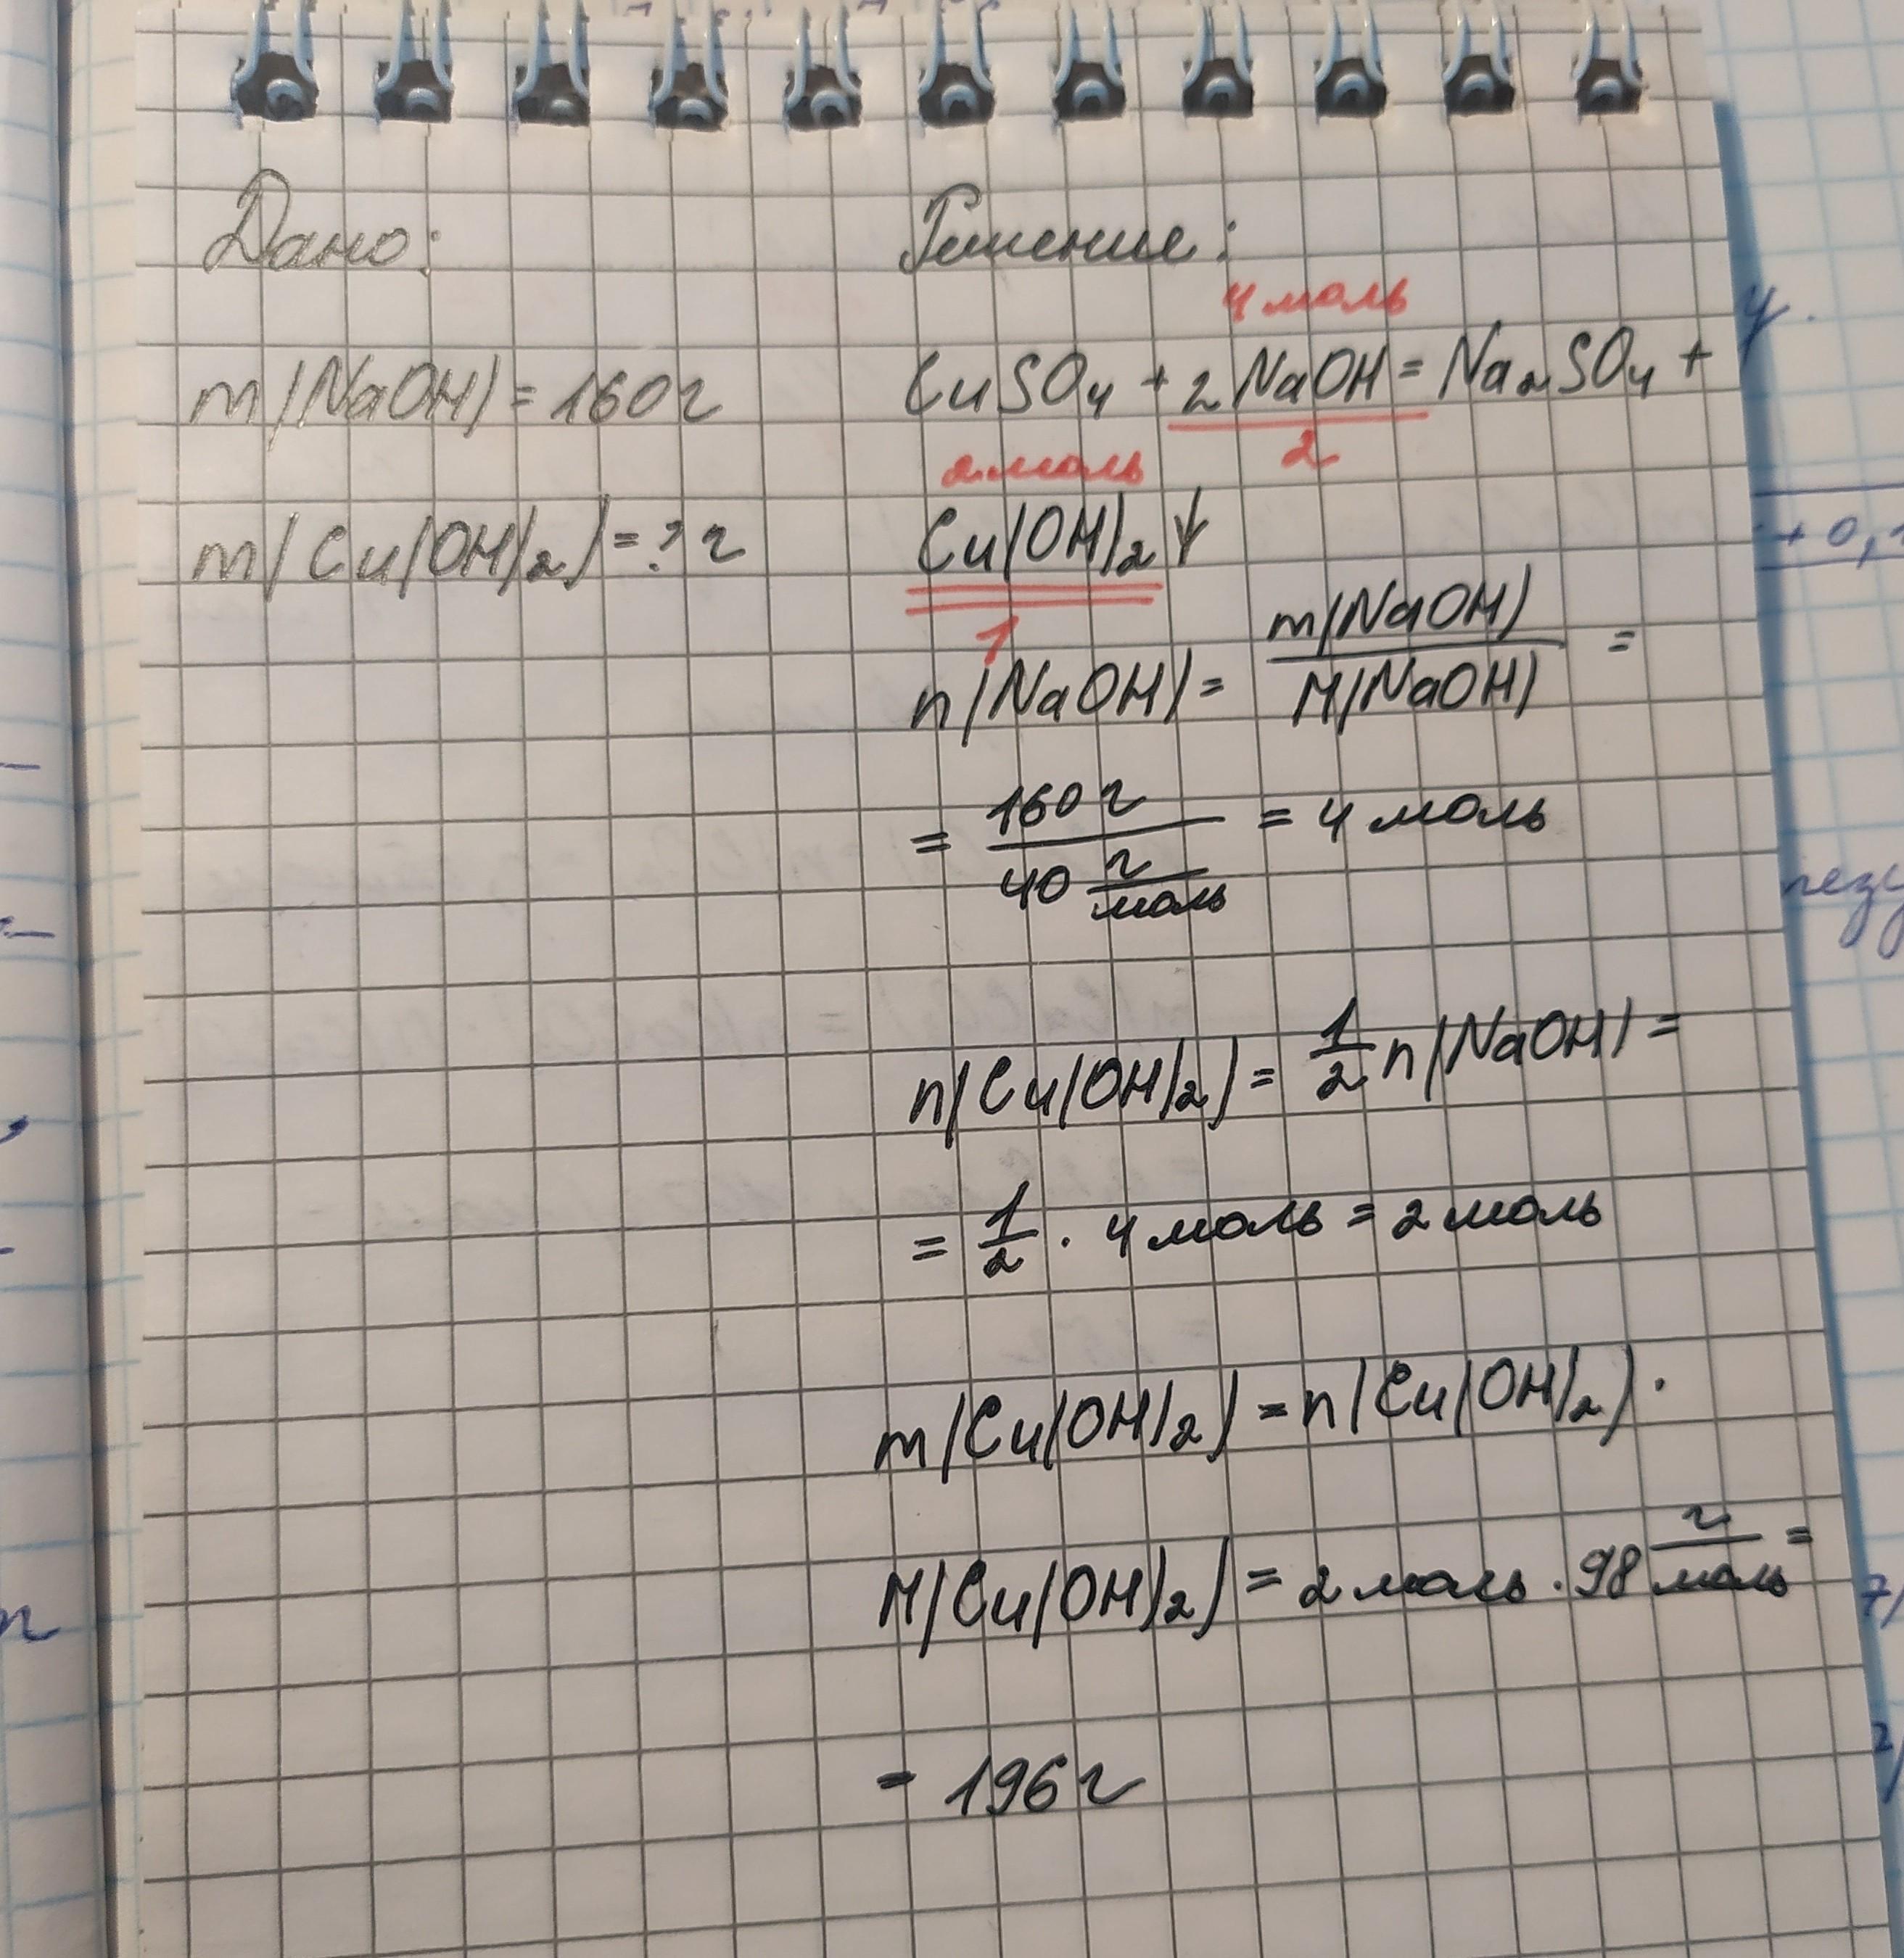 Дано:
m(NaOH) = 160 г
m(Cu(OH)₂) = ? г
Решение:
4 моль
CuSO₄ + 2 NaOH = Na₂SO₄ +
2
2 моль
Cu(OH)₂ ↓
1
n(NaOH) = m(NaOH) / M(NaOH) =
= 160 г / 40 г/моль = 4 моль
n(Cu(OH)₂) = 1/2 n(NaOH) =
= 1/2 · 4 моль = 2 моль
m(Cu(OH)₂) = n(Cu(OH)₂) ·
M(Cu(OH)₂) = 2 моль · 98 г/моль =
= 196 г